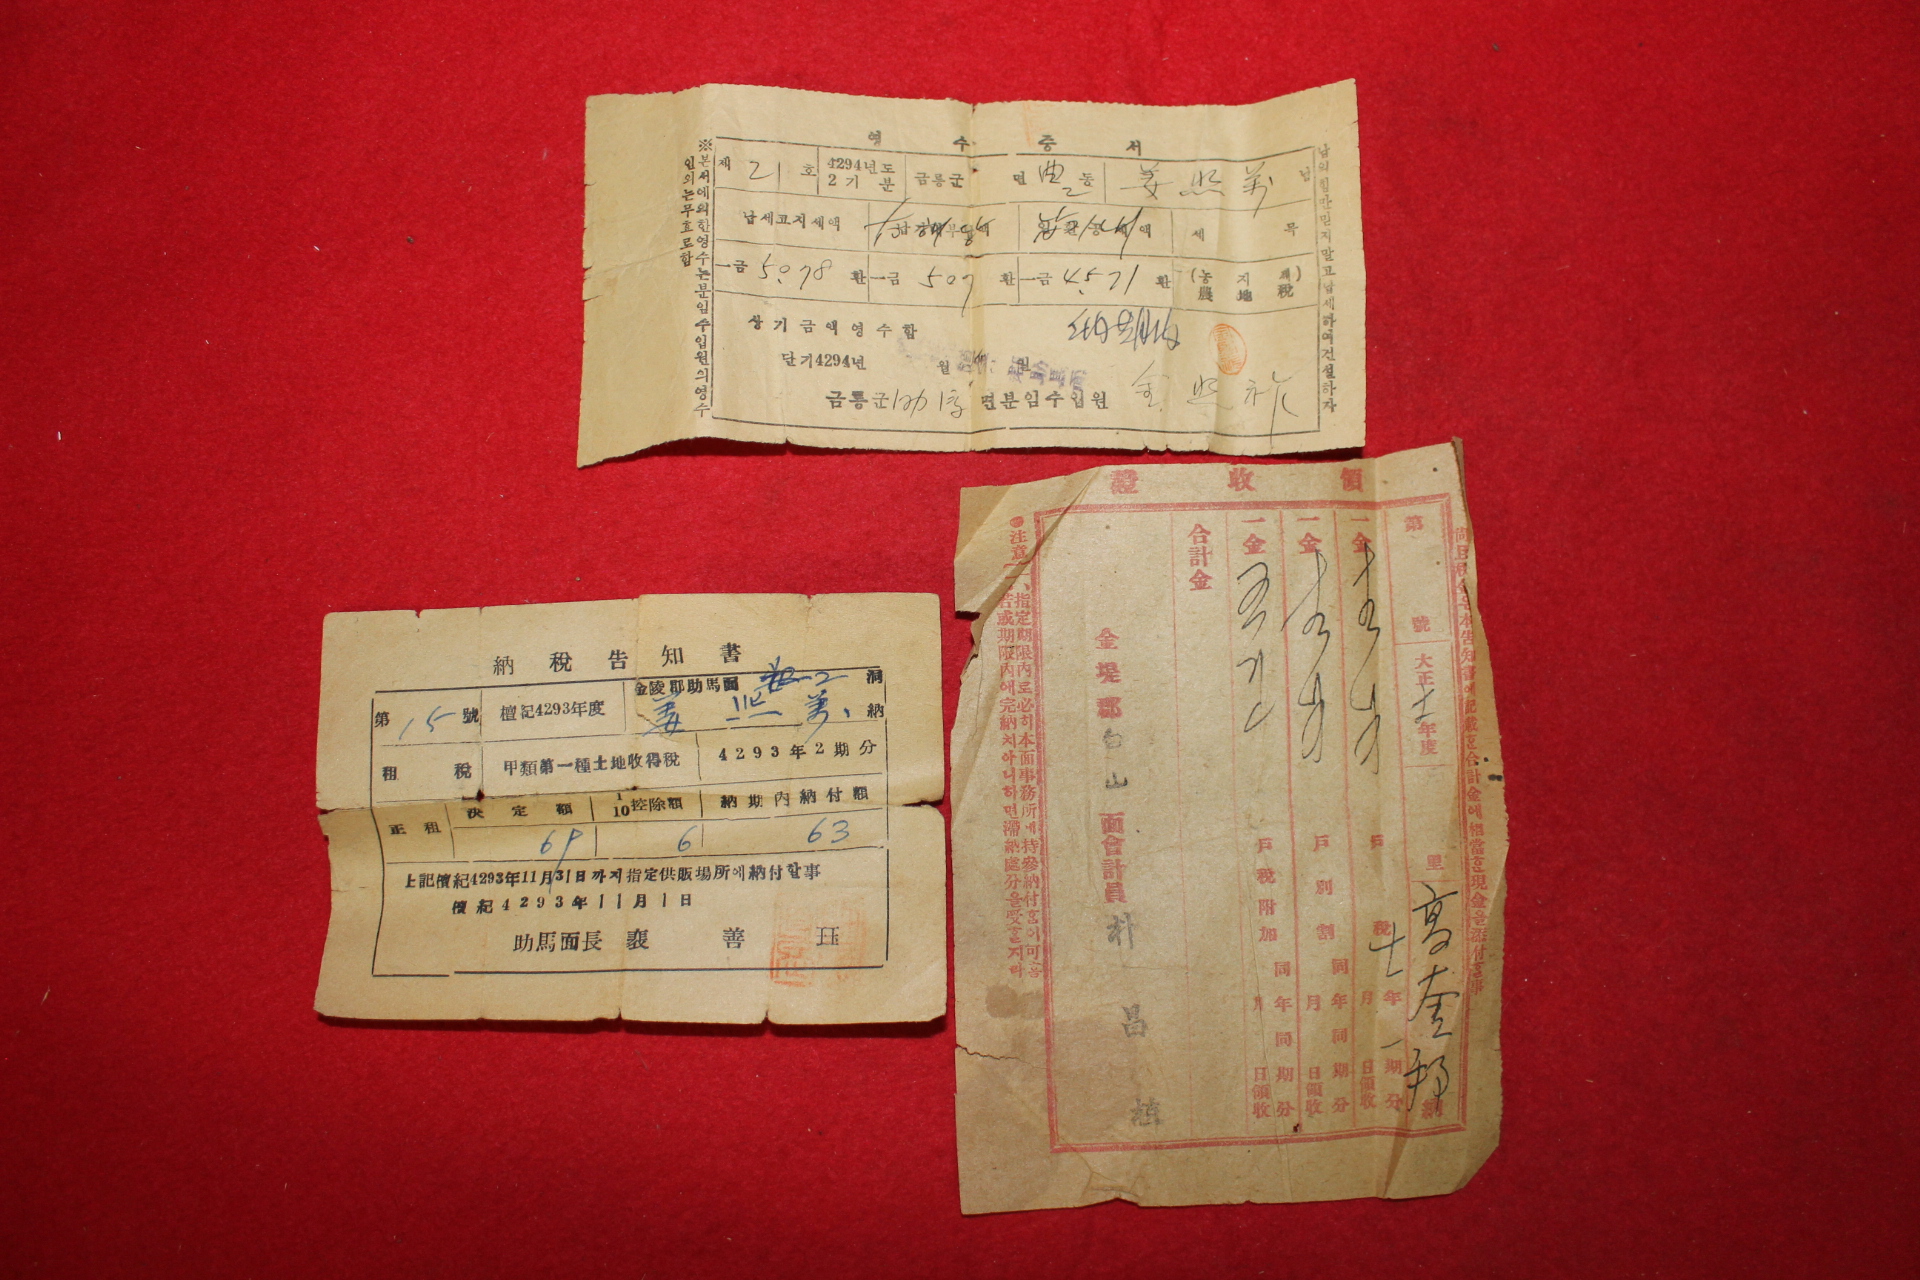 영수증서
제 21 호 4294년도 2기분 금릉군 면 동 姜照萬 납
납세고지세액 세목
一금 5078 환 一금 507 환 一금 4571 환 (농지세) 農地稅
상기금액영수함
단기4294년 월 일
금릉군 면분임수입원 金照
※본서에의한영수는분임수입원의영수
인외는무효로함
남의힘만믿지말고납세하여건설하자
納稅告知書
第 15 號 檀記4293年度 金陵郡助馬面 洞
姜照萬 納
租稅 甲類第一種土地收得稅 4293年2期分
正租 決定額 1/10控除額 納期內納付額
69 6 63
上記檀紀4293年11月31日까지指定供販場所에納付할事
檀紀4293年11月1日
助馬面長 裵善玉
領收證
第 號 大正十一年度 里 高奎 納
一金 戶稅 十一年一期分 月 日領收
一金 戶別割 同年同期分 月 日領收
一金 戶稅附加 同年同期分 月 日領收
合計金
金堤郡白山面會計員 朴昌植
注意 一、指定期限內로必히本面事務所에持參納付홈이可홈
若或期限內에完納치아니하면滯納處分을受흘지라